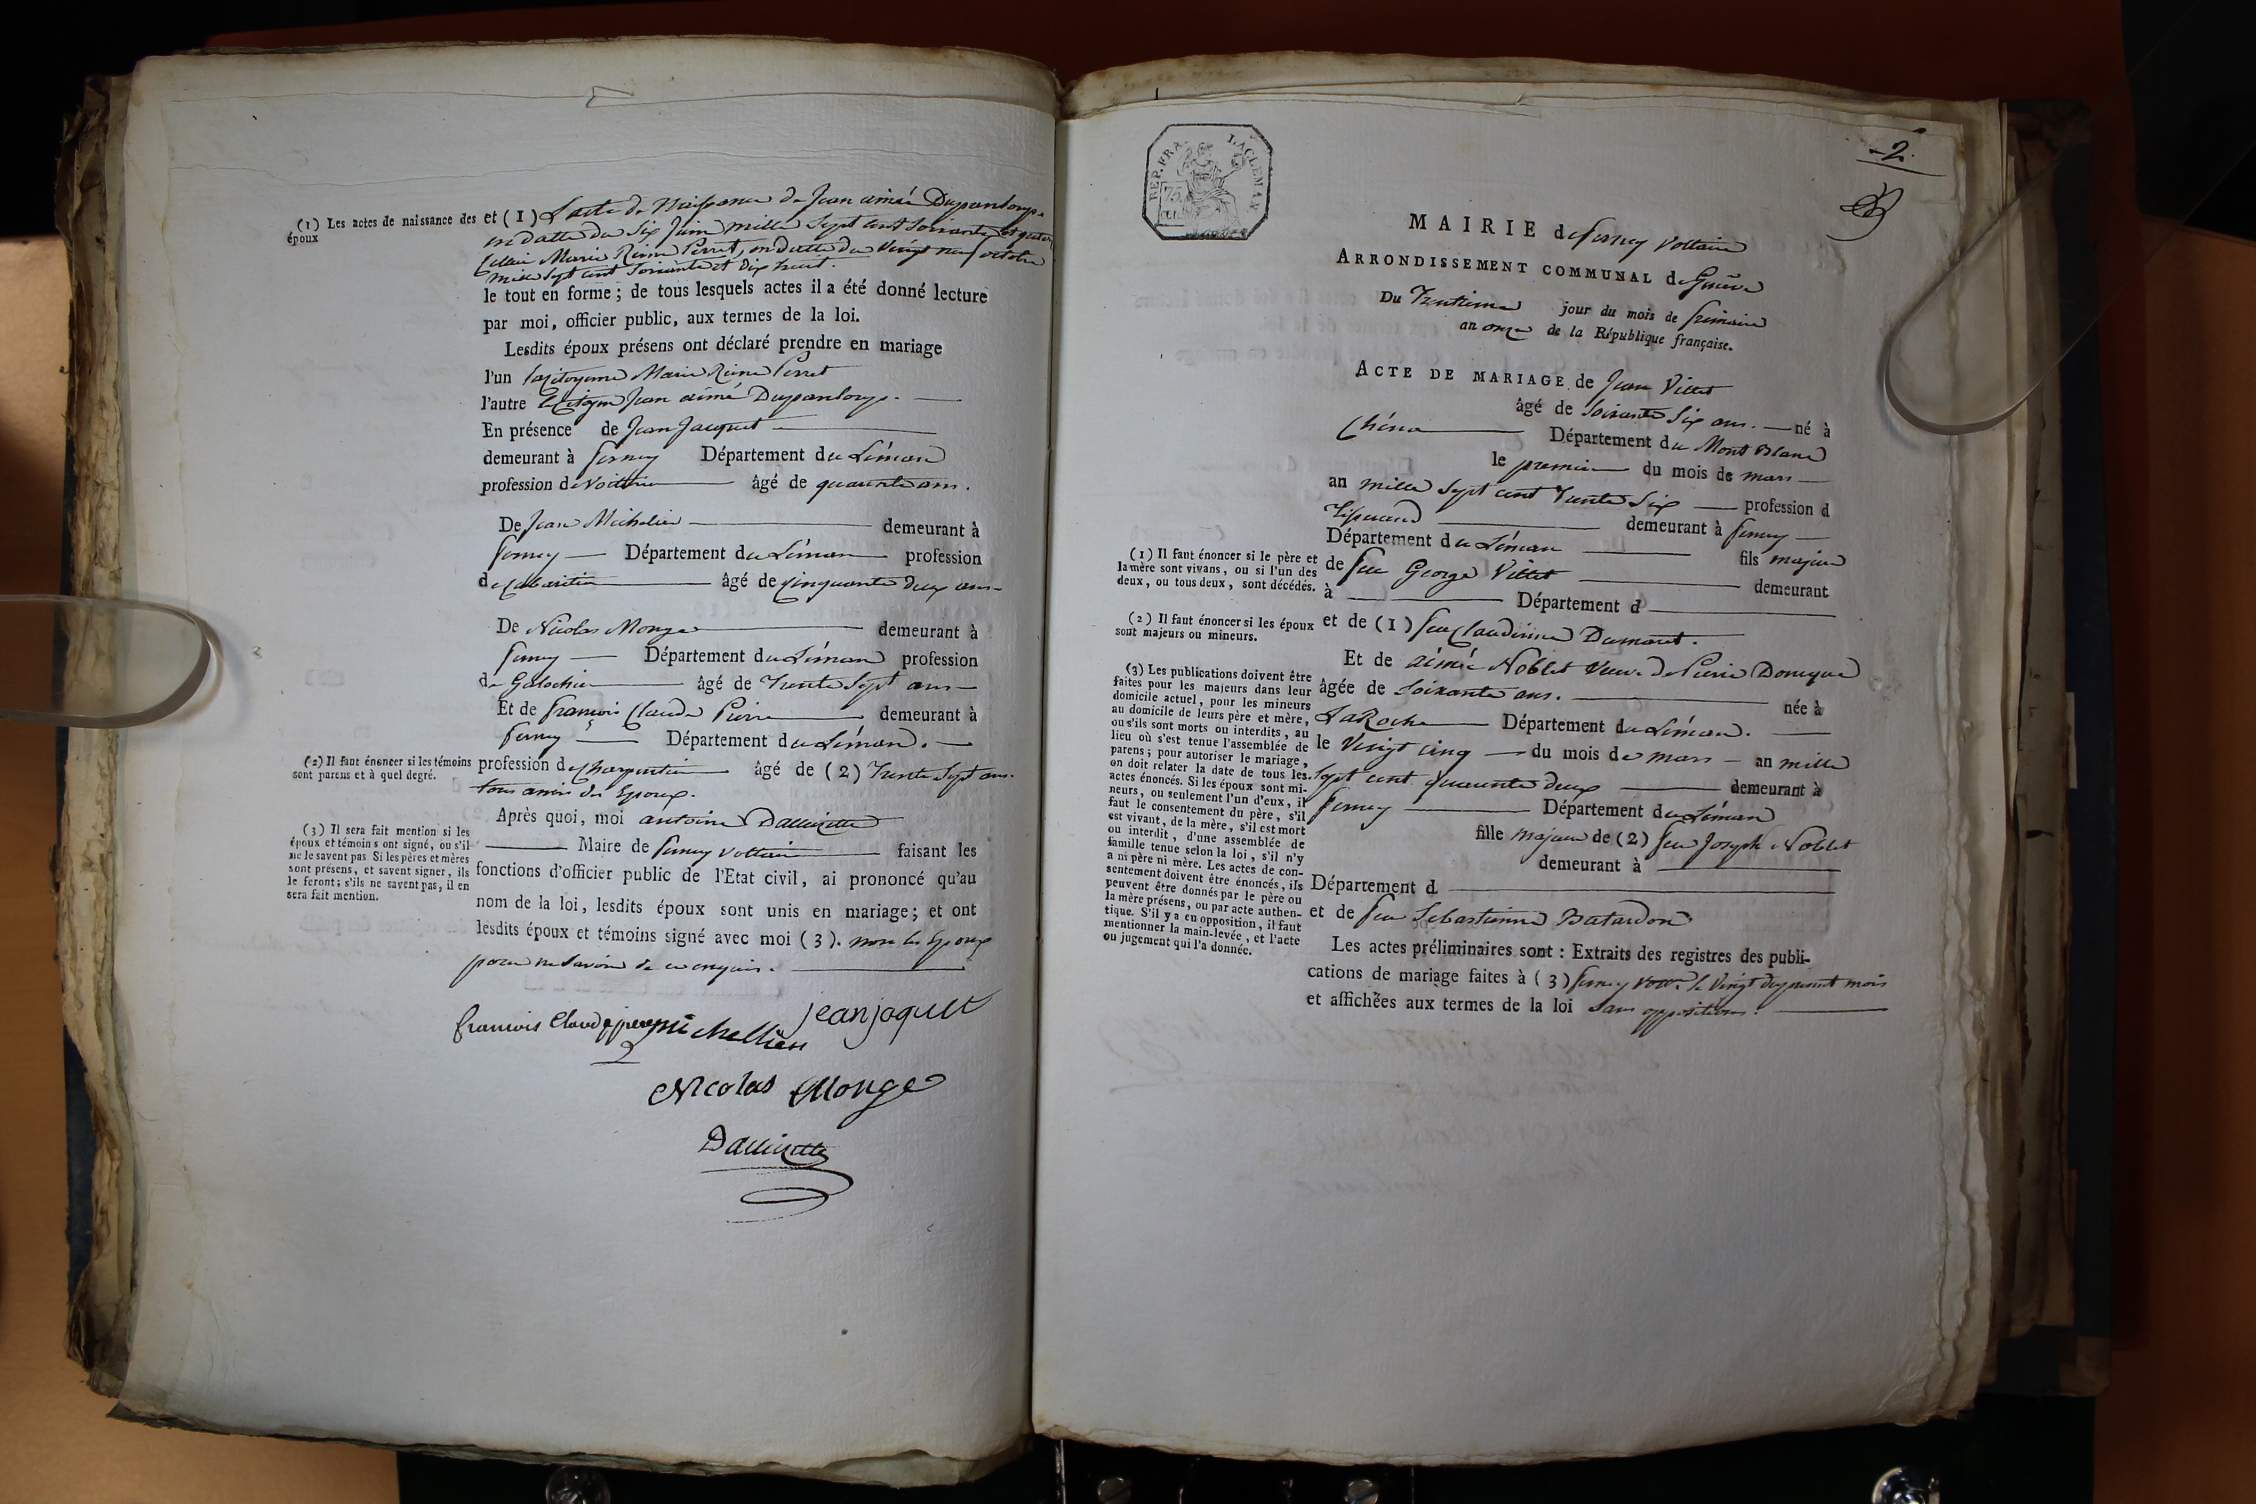 (1) Les actes de naissance des
époux
et (1) L'acte de Naissance de Jean aimé Dupanloup.
en datte du Six Juin mille Sept cent soixante et quatre
Celui Marie Reine Perret, en datte du Vingt neuf octobre
mille Sept cent Soixante et dix huit.
le tout en forme ; de tous lesquels actes il a été donné lecture
par moi, officier public, aux termes de la loi.
Lesdits époux présens ont déclaré prendre en mariage
l'un la Citoyenne Marie Reine Perret
l'autre le Citoyen Jean aimé Dupanloup.
En présence de Jean Jacquet
demeurant à ferney Département du Léman
profession de Voiturier âgé de quarante ans.
De Jean Michelin demeurant à
ferney Département du Léman profession
de Cabaretier âgé de Cinquante deux ans
De Nicolas Monge demeurant à
ferney Département du Léman profession
de Galochier âgé de Trente Sept ans
Et de françois Claude Pierre demeurant à
ferney Département du Léman.
(2) Il faut énoncer si les témoins
sont parens et à quel degré.
profession de Charpentier âgé de (2) Trente Sept ans.
tous amis des Epoux.
Après quoi, moi antoine
(3) Il sera fait mention si les
époux et témoins ont signé, ou s'il
ne le savent pas Si les pères et mères
sont présens, et savent signer, ils
le feront ; s'ils ne savent pas, il en
sera fait mention.
Maire de ferney voltaire faisant les
fonctions d'officier public de l'Etat civil, ai prononcé qu'au
nom de la loi, lesdits époux sont unis en mariage ; et ont
lesdits époux et témoins signé avec moi (3). non les Epoux
pour ne Savoir de ce enquis.
francois Claude pierre
michellien
jean jaquet
Nicolas Monge
2.
REP. FRA.
75
MAIRIE de ferney Voltaire
ARRONDISSEMENT COMMUNAL de Genève
Du Trentieme jour du mois de frimaire
an onze de la République française.
ACTE DE MARIAGE de Jean Villet
âgé de soixante Six ans. né à
Chêne Département du Mont Blanc
le premier du mois de mars
an mille Sept cent Trente Six profession d
Tisserand demeurant à ferney
Département du Léman fils majeur
(1) Il faut énoncer si le père et
la mère sont vivans, ou si l'un des
deux, ou tous deux, sont décédés.
de feu George Villet demeurant
à Département d
(2) Il faut énoncer si les époux
sont majeurs ou mineurs.
et de (1) feu Claudine Dumaret.
Et de aimée Noblet veuve de Pierre
âgée de Soixante ans. née à
LaRoche Département du Léman.
le Vingt cinq du mois de mars an mille
Sept cent quarante deux demeurant à
ferney Département du Léman
fille majeure de (2) feu Joseph Noblet
demeurant à
Département d
et de feu Sebastienne Batardon
(3) Les publications doivent être
faites pour les majeurs dans leur
domicile actuel, pour les mineurs
au domicile de leurs père et mère,
ou s'ils sont morts ou interdits, au
lieu où s'est tenue l'assemblée de
parens ; pour autoriser le mariage,
on doit relater la date de tous les
actes énoncés. Si les époux sont mi-
neurs, ou seulement l'un d'eux, il
faut le consentement du père, s'il
est vivant, de la mère, s'il est mort
ou interdit, d'une assemblée de
famille tenue selon la loi, s'il n'y
a ni père ni mère. Les actes de con-
sentement doivent être énoncés, ils
peuvent être donnés par le père ou
la mère présens, ou par acte authen-
tique. S'il y a eu opposition, il faut
mentionner la main-levée, et l'acte
ou jugement qui l'a donnée.
Les actes préliminaires sont : Extraits des registres des publi-
cations de mariage faites à (3) ferney le Vingt du present mois
et affichées aux termes de la loi Sans oppositions.